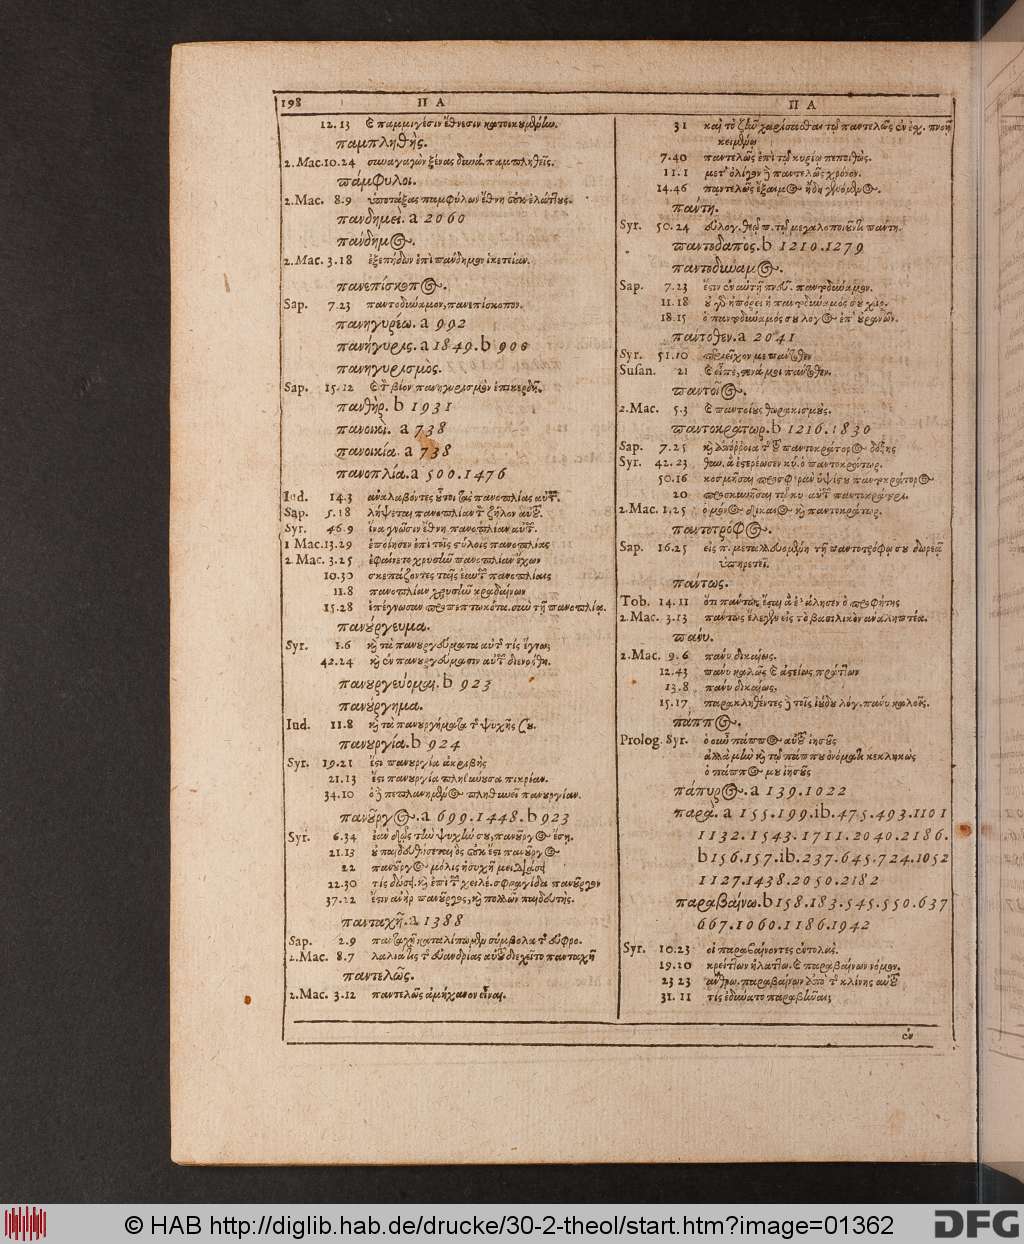 198 Π Α
12.13 & παμμιγέσιν ἔθνεσιν
παμπληθής.
2.Mac.10.24 συναγαγὼν ξένας παμπληθεῖς.
πάμφυλοι.
2.Mac. 8.9 ὑποτάξας παμφύλων ἔθνη οὐκ ἐλάττους.
πανδημεί. a 2060
πάνδημος.
2.Mac. 3.18 ἐξεπήδων ἐπὶ πάνδημον ἱκετείαν.
πανεπίσκοπος.
Sap. 7.23 παντοδύναμον, πανεπίσκοπον.
πανηγυρίζω. a 992
πανήγυρις. a 1849. b 906
πανηγυρισμὸς.
Sap. 15.12 & τ βίον πανηγυρισμὸν ἐπικερδῆ.
πανθήρ. b 1931
πανοικί. a 738
πανοικία. a 738
πανοπλία. a 500.1476
Iud. 14.3 ἀναλαβόντες πανοπλίας αὐτ.
Sap. 5.18 λήψεται πανοπλίαν τ ζῆλον αὐτοῦ.
Syr. 46.9 ἵνα γνῶσιν ἔθνη πανοπλίαν αὐτ.
1 Mac.13.29 ἐποίησεν ἐπὶ τοῖς στύλοις πανοπλίας
2 Mac. 3.25 ἐφαίνετο χρυσῆν πανοπλίαν ἔχων
10.30 σκεπάζοντες ταῖς ἑαυτ πανοπλίαις
11.8 πανοπλίαν χρυσῆν κραδαίνων
15.28 ἐπέγνωσαν προπεπτωκότα σὺν τῇ πανοπλίᾳ.
πανούργευμα.
Syr. 1.6 καὶ τὰ πανουργεύματα αὐτ τίς ἔγνω;
42.24 πανουργεύμασιν αὐτ διενοήθη.
πανουργεύομαι. b 923
πανούργημα.
Iud. 11.8 καὶ τὰ πανουργήματα τ ψυχῆς σου.
πανουργία. b 924
Syr. 19.21 ἔστι πανουργία ἀκριβὴς
21.13 ἔστι πανουργία πληθύνουσα πικρίαν.
34.10 ὁ πεπλανημένος πληθυνεῖ πανουργίαν.
πανοῦργος. a 699.1448. b 923
Syr. 6.34 ἐὰν δῷς τὴν ψυχήν σου, πανοῦργος ἔσῃ.
21.13 οὐ παιδευθήσεται ὃς οὐκ ἔστι πανοῦργος
22 πανοῦργος μόλις ἡσυχῆ μειδιάσει
22.30 τίς δώσει καὶ ἐπὶ τ χειλέ. σφραγίδα πανοῦργον
37.12 ἔστιν ἀνὴρ πανοῦργος, καὶ πολλῶν παιδευτής.
πανταχῆ. a 1388
Sap. 2.9 πανταχῆ καταλίπωμεν σύμβολα τ εὐφρο.
2.Mac. 8.7 λαλιά τις τ εὐανδρίας αὐτοῦ διεχεῖτο πανταχῆ
παντελῶς.
2.Mac. 3.12 παντελῶς ἀμήχανον εἶναι.
Π Α
31 καὶ τὸ ζῆν χαρίσασθαι τῷ παντελῶς ἐν ἐσχ. πνοῇ
κειμένῳ
7.40 παντελῶς ἐπὶ τῷ κυρίῳ πεποιθώς.
11.1 μετ' ὀλίγον παντελῶς χρόνον.
14.46 παντελῶς ἔξαιμος ἤδη γενόμενος.
πάντη.
Syr. 50.24 εὐλογ. μεγαλοποιοῦντι πάντη.
παντοδαπὸς. b 1210.1279
παντοδύναμος.
Sap. 7.23 παντοδύναμον.
11.18 οὐ γὰρ ἠπόρει ἡ παντοδύναμός σου χείρ.
18.15 ὁ παντοδύναμός σου λόγος ἐπ' οὐρανῶν.
πάντοθεν. a 2041
Syr. 51.10 περιεῖχον με πάντοθεν
Susan. 21 & εἶπε, στενά μοι πάντοθεν.
παντοῖος.
2.Mac. 5.3 & παντοίους θωρακισμούς.
παντοκράτωρ. b 1216.1830
Sap. 7.25 καὶ ἀπόρροια τ παντοκράτορος δόξης
Syr. 42.23 ἃ ἐστερέωσεν κύ. ὁ παντοκράτωρ.
50.16 κοσμῆσαι προσφορὰν ὑψίστου παντοκράτορος
20 προσκυνῆσαι τῷ κυ. αὐτ παντοκράτορι.
2.Mac. 1.25 ὁ μόνος δίκαιος καὶ παντοκράτωρ.
παντοτρόφος.
Sap. 16.25 εἰς π. μεταλλευομένη τῇ παντοτρόφῳ σου δωρεᾷ
ὑπηρετεῖ.
πάντως.
Tob. 14.11 ὅτι πάντως ἔσται ἃ ἐλάλησεν ὁ προφήτης
2.Mac. 3.13 πάντως ἔλεγεν εἰς τὸ βασιλικὸν ἀναληπτέα.
πάνυ.
2.Mac. 9.6 πάνυ δικαίως.
12.43 πάνυ καλῶς & ἀστείως πράττων
13.8 πάνυ δικαίως.
15.17 παρακληθέντες τοῖς ἰούδου λόγ. πάνυ καλοῖς.
πάππος.
Prolog. Syr. ὁ οὖν πάππος αὐτοῦ ἰησοῦς
ἀλλὰ μὴν καὶ τῷ πάππου ὀνόματι κεκληκὼς
ὁ πάππος μου ἰησοῦς
πάπυρος. a 139.1022
παρά. a 155.199.ib.475.493.1101
1132.1543.1711.2040.2186.
b 156.157.ib.237.645.724.1052
1127.1438.2050.2182
παραβαίνω. b 158.183.545.550.637
667.1060.1186.1942
Syr. 10.23 οἱ παραβαίνοντες ἐντολάς.
19.20 κρείττων ἠλαττω. & παραβαίνων νόμον.
23 23 ἄνθρω. παραβαίνων ἀπὸ τ κλίνης αὐτοῦ
31. 11 τίς ἐδύνατο παραβῆναι;
ἐν
© HAB http://diglib.hab.de/drucke/30-2-theol/start.htm?image=01362
DFG